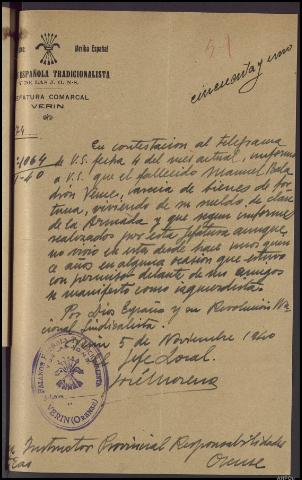 Arriba España!
51
ESPAÑOLA TRADICIONALISTA
Y DE LAS J. O. N-S.
cincuenta y uno
JEFATURA COMARCAL
VERIN
En contestacion al telegrama
de V.S. fecha 4 del mes actual, informo
a V.S. que el fallecido Manuel
carecia de bienes de for
tuna, viviendo de su sueldo, de clase
de la Armada y que segun informes
realizados por esta Jefatura aunque
no vivio en esta desde hace unos quin
ce años en alguna ocasion que estuvo
con permiso delante de sus amigos
se manifesto como izquierdista.
Por Dios España y su Revolución Na
cional Sindicalista.
Verin 5 de Noviembre 1940
Jefe Local.
José Moreno
VERIN (Orense)
Instructor Provincial Responsabilidades
Orense